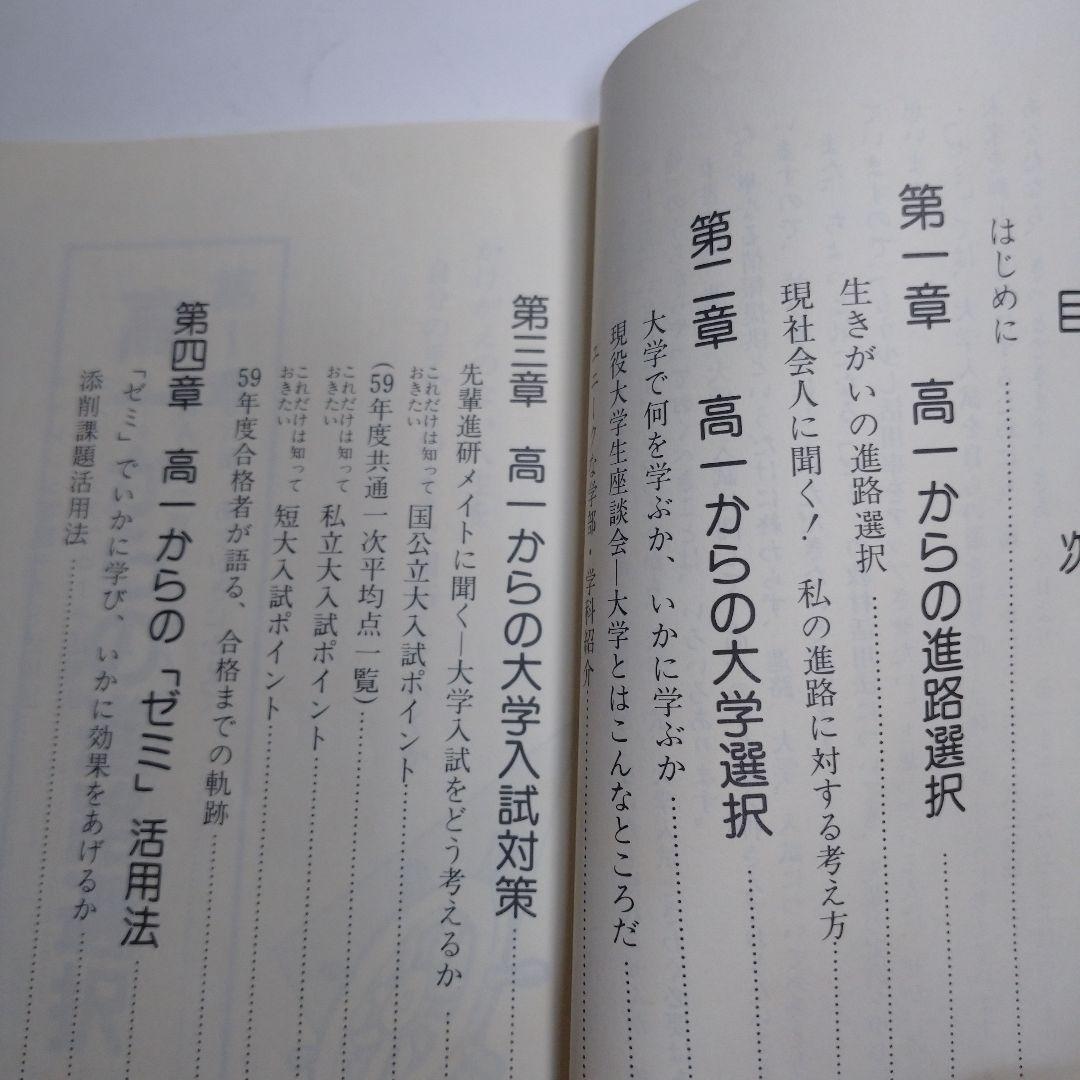 目次
はじめに
第一章 高一からの進路選択
生きがいの進路選択
現社会人に聞く! 私の進路に対する考え方
第二章 高一からの大学選択
大学で何を学ぶか、いかに学ぶか
現役大学生座談会―大学とはこんなところだ
ユニークな学部・学科紹介
第三章 高一からの大学入試対策
先輩進研メイトに聞く―大学入試をどう考えるか
これだけは知っておきたい 国公立大入試ポイント
(59年度共通一次平均点一覧)
これだけは知っておきたい 私立大入試ポイント
これだけは知っておきたい 短大入試ポイント
59年度合格者が語る、合格までの軌跡
第四章 高一からの「ゼミ」活用法
「ゼミ」でいかに学び、いかに効果をあげるか
添削課題活用法